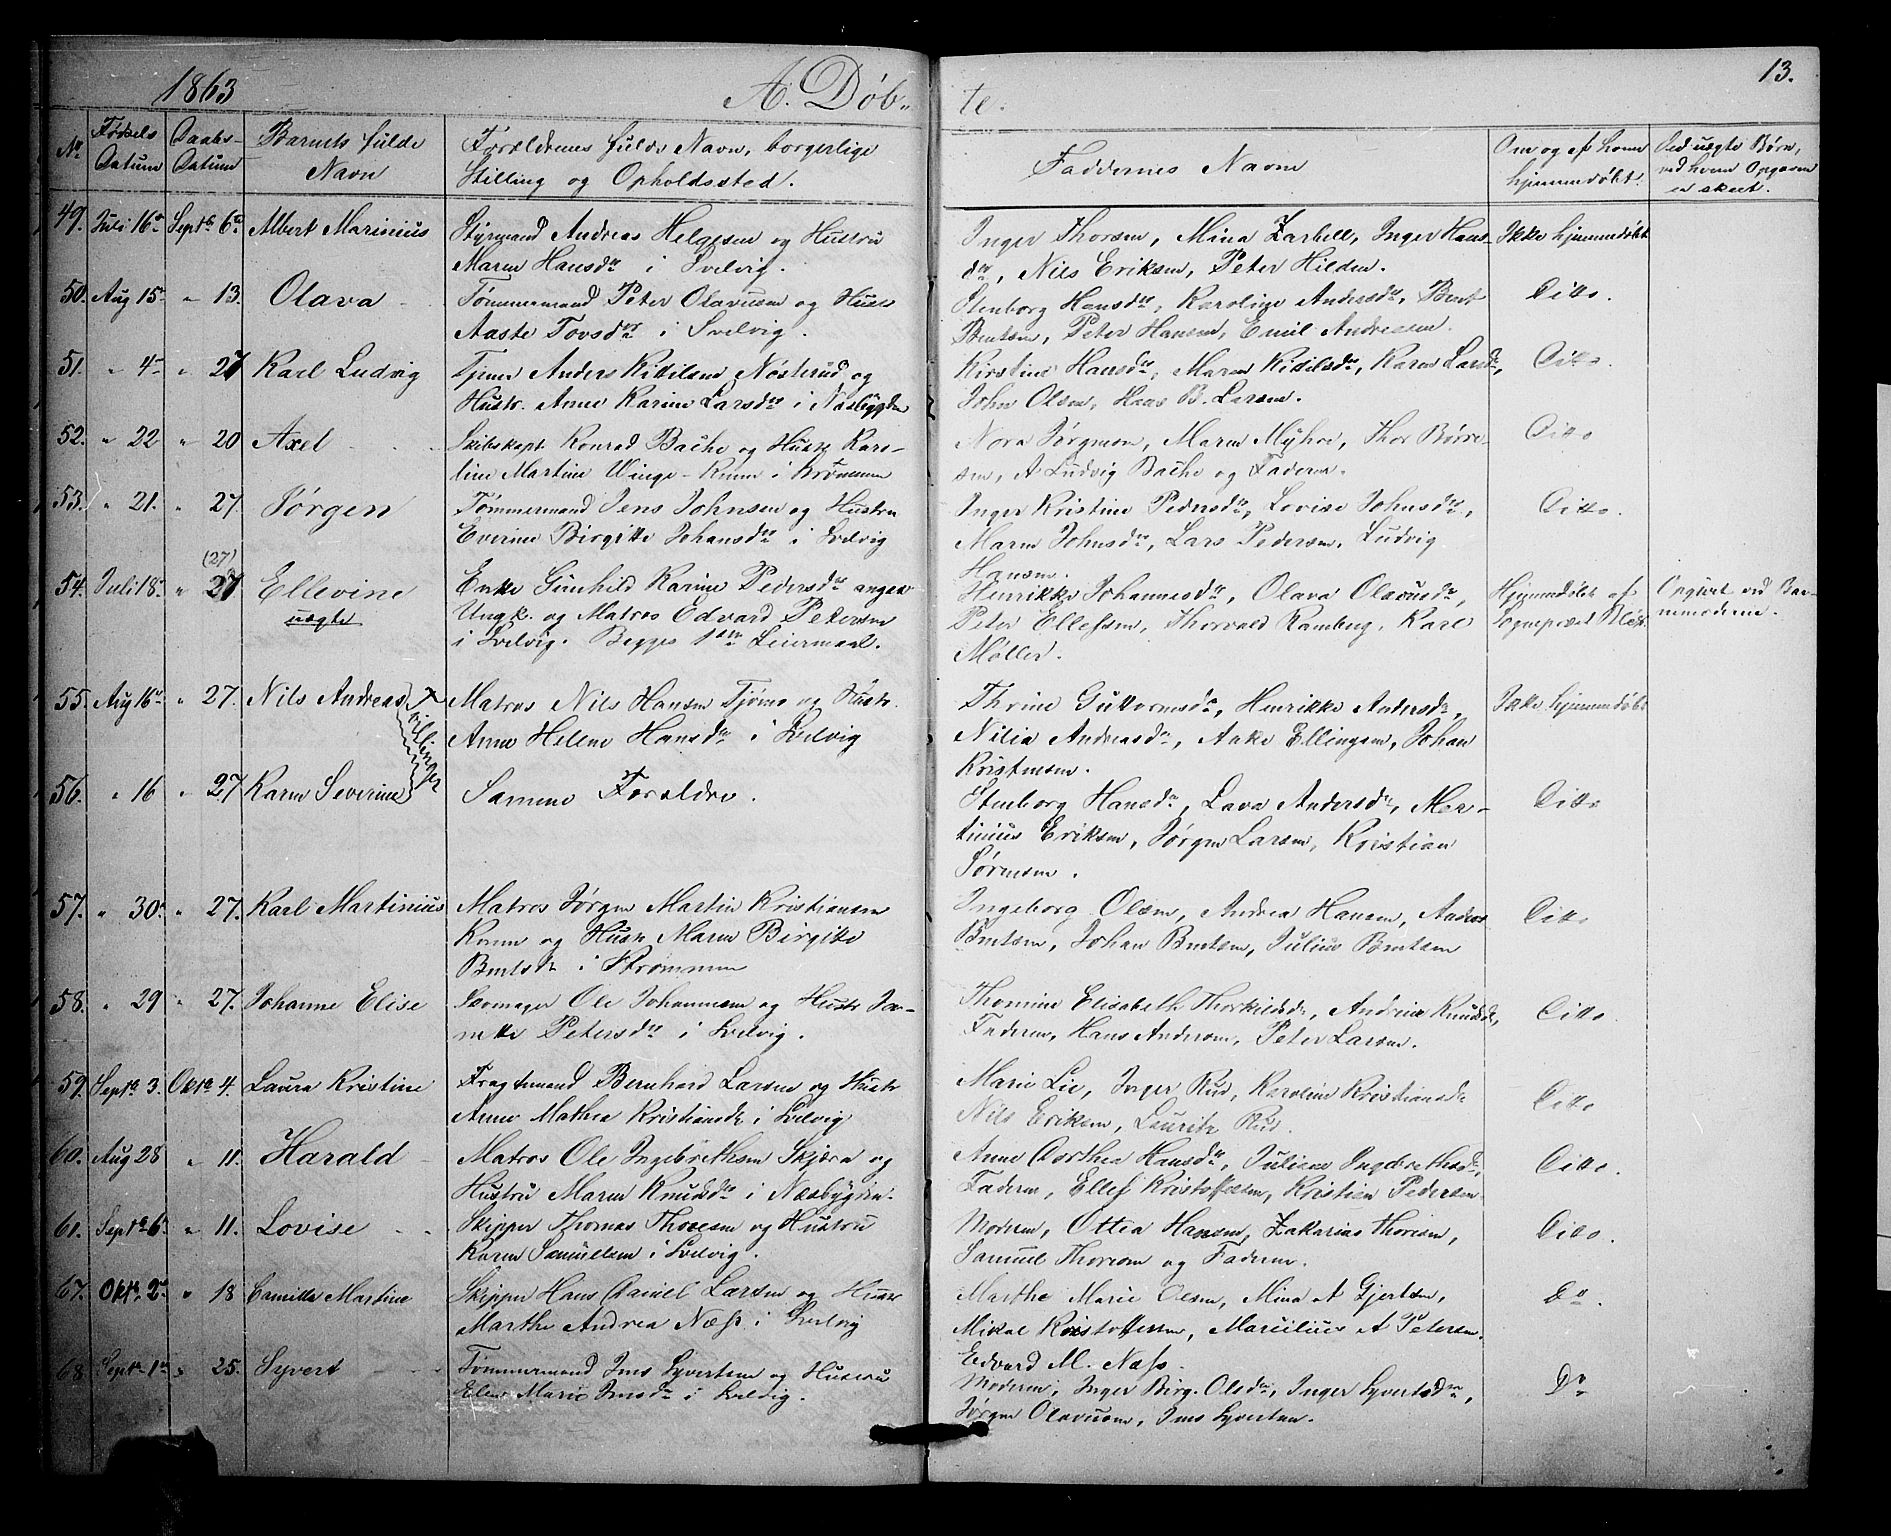 1863 A. Døb- te. 13.
No Fødsels Datum Daabs-Datum Barnets fulde Navn Forældrenes fulde Navn, borgerlige Stilling og Opholdssted. Faddernes Navn Om og af hvem hjemmedøbt. Ved uægte Børn, ved hvem Opgaven er skeet.
49. Juli 16de Septbr 6te Albert Marinius Styrmand Andreas Helgesen og Hustru Inger Thorsen, Mina Zarbell, Inger Hans- Ikke hjemmedøbt
Maren Hansdr i Svelvig. dr, Nils Eriksen, Peter Hilden.
50. Aug 15 " 13. Olava Tømmermand Peter Olavusen og Hustr Stenborg Hansdr, Karoline Andersdr, Bent Ditto.
Aaste Tovsdr i Svelvig. Bentsen, Peter Hansen, Emil Andresen.
51. " 4 " 27 Karl Ludvig Tjener Anders Kittilsen Nøsterud og Kirstine Hansdr, Maren Kittilsdr, Karen Larsdr, Ditto.
Hustr. Anne Karine Larsdr i Næsbygden John Olsen, Hans B. Larsen.
52. " 22 " 20 Axel Skibskapt. Konrad Bache og Hustr Karo- Nora Jørgensen, Maren Myhre, Thor Børre- Ditto
line Martine Winge-Kruse i Strømmen sen, A Ludvig Bache og Faderen.
53. " 21. " 27. Jørgen Tømmermand Jens Johnsen og Hustru Inger Kristine Pedersdr, Lovise Johnsdr, Ditto.
Everine Birgitte Johansdr i Svelvig Maren Johnsdr, Lars Pedersen, Ludvig
(27) Hansen.
54. Juli 18 " 27 Ellevine Enke Gunhild Karine Pedersdr angav Henrikke Johannesdr, Olava Olavusdr, Hjemmedøbt af Opgivet ved Bar-
uægte Ungk. og Matros Edvard Petersen Peter Ellefsen, Thorvald Ramberg, Karl Sognepræst nemoderen.
i Svelvig. Begges 1ste Leiermaal. Møller.
55. Aug 16 " 27. Nils Andreas Tvillinger Matros Nils Hansen Tjømø og Hustr. Thrine Guttormsdr, Henrikke Andersdr, Ikke hjemmedøbt
Anne Helene Hansdr i Svelvig Nilia Andreasdr, Anke Ellingsen, Johan
Kristensen.
56. " 16 " 27 Karen Severine Samme Forældre. Stenborg Hansdr, Lava Andersdr, Mar- Ditto
tinius Eriksen, Jørgen Larsen, Kristian
Sørensen.
57. " 30. " 27. Karl Martinius Matros Jørgen Martin Kristiansen Ingeborg Olsen, Andrea Hansen, Anders Ditto
og Hustr Maren Birgitte Bentsen, Johan Bentsen, Julius Bentsen
Bentsdr i Strømmen
58. " 29 " 27. Johanne Elise Ole Johannesen og Hustr Ja- Thomine Elisabeth Thorkildsdr, Andrine Knudsdr, Ditto.
nette Petersdr i Svelvig. Faderen, Hans Andersen, Peter Larsen.
59. Septbr 3. Oktbr 4. Laura Kristine Fragtemand Bernhard Larsen og Hustr Marie Lie, Inger Rud, Karoline Kristiansdr Ditto
Anne Mathea Kristiansdr i Svelvig Nils Eriksen, Lauritz Rud.
60. Aug 28 " 11. Harald Matros Ole Ingebrethsen Skjæra og Anne Dorthea Hansdr, Juliane Ingebrethsdr, Ditto.
Hustru Maren Knudsdr i Næsbygden. Faderen, Ellef Kristoffersen, Kristian Pedersen
61. Septbr 6 " 11. Lovise Skipper Thomas Thoresen og Hustru Moderen, Ottea Hansen, Zakarias Thoresen, Ditto.
Karen Samuelsen i Svelvig. Samuel Thoresen og Faderen.
67. Oktr. 2 " 18 Camilla Martine Skipper Hans Daniel Larsen og Hustr Marthe Marie Olsen, Mina A Gjertsen, Do.
Marthe Andrea Næss i Svelvig Mikal Kristoffersen, Marcilius A Petersen
Edvard M. Næss.
68 Septbr 1 " 25. Syvert Tømmermand Jens Syvertsen og Hustru Moderen, Inger Birg. Olsdr, Inger Syvertsdr, Do
Elen Marie Jensdr i Svelvig. Jørgen Olavusen, Jens Syvertsen.